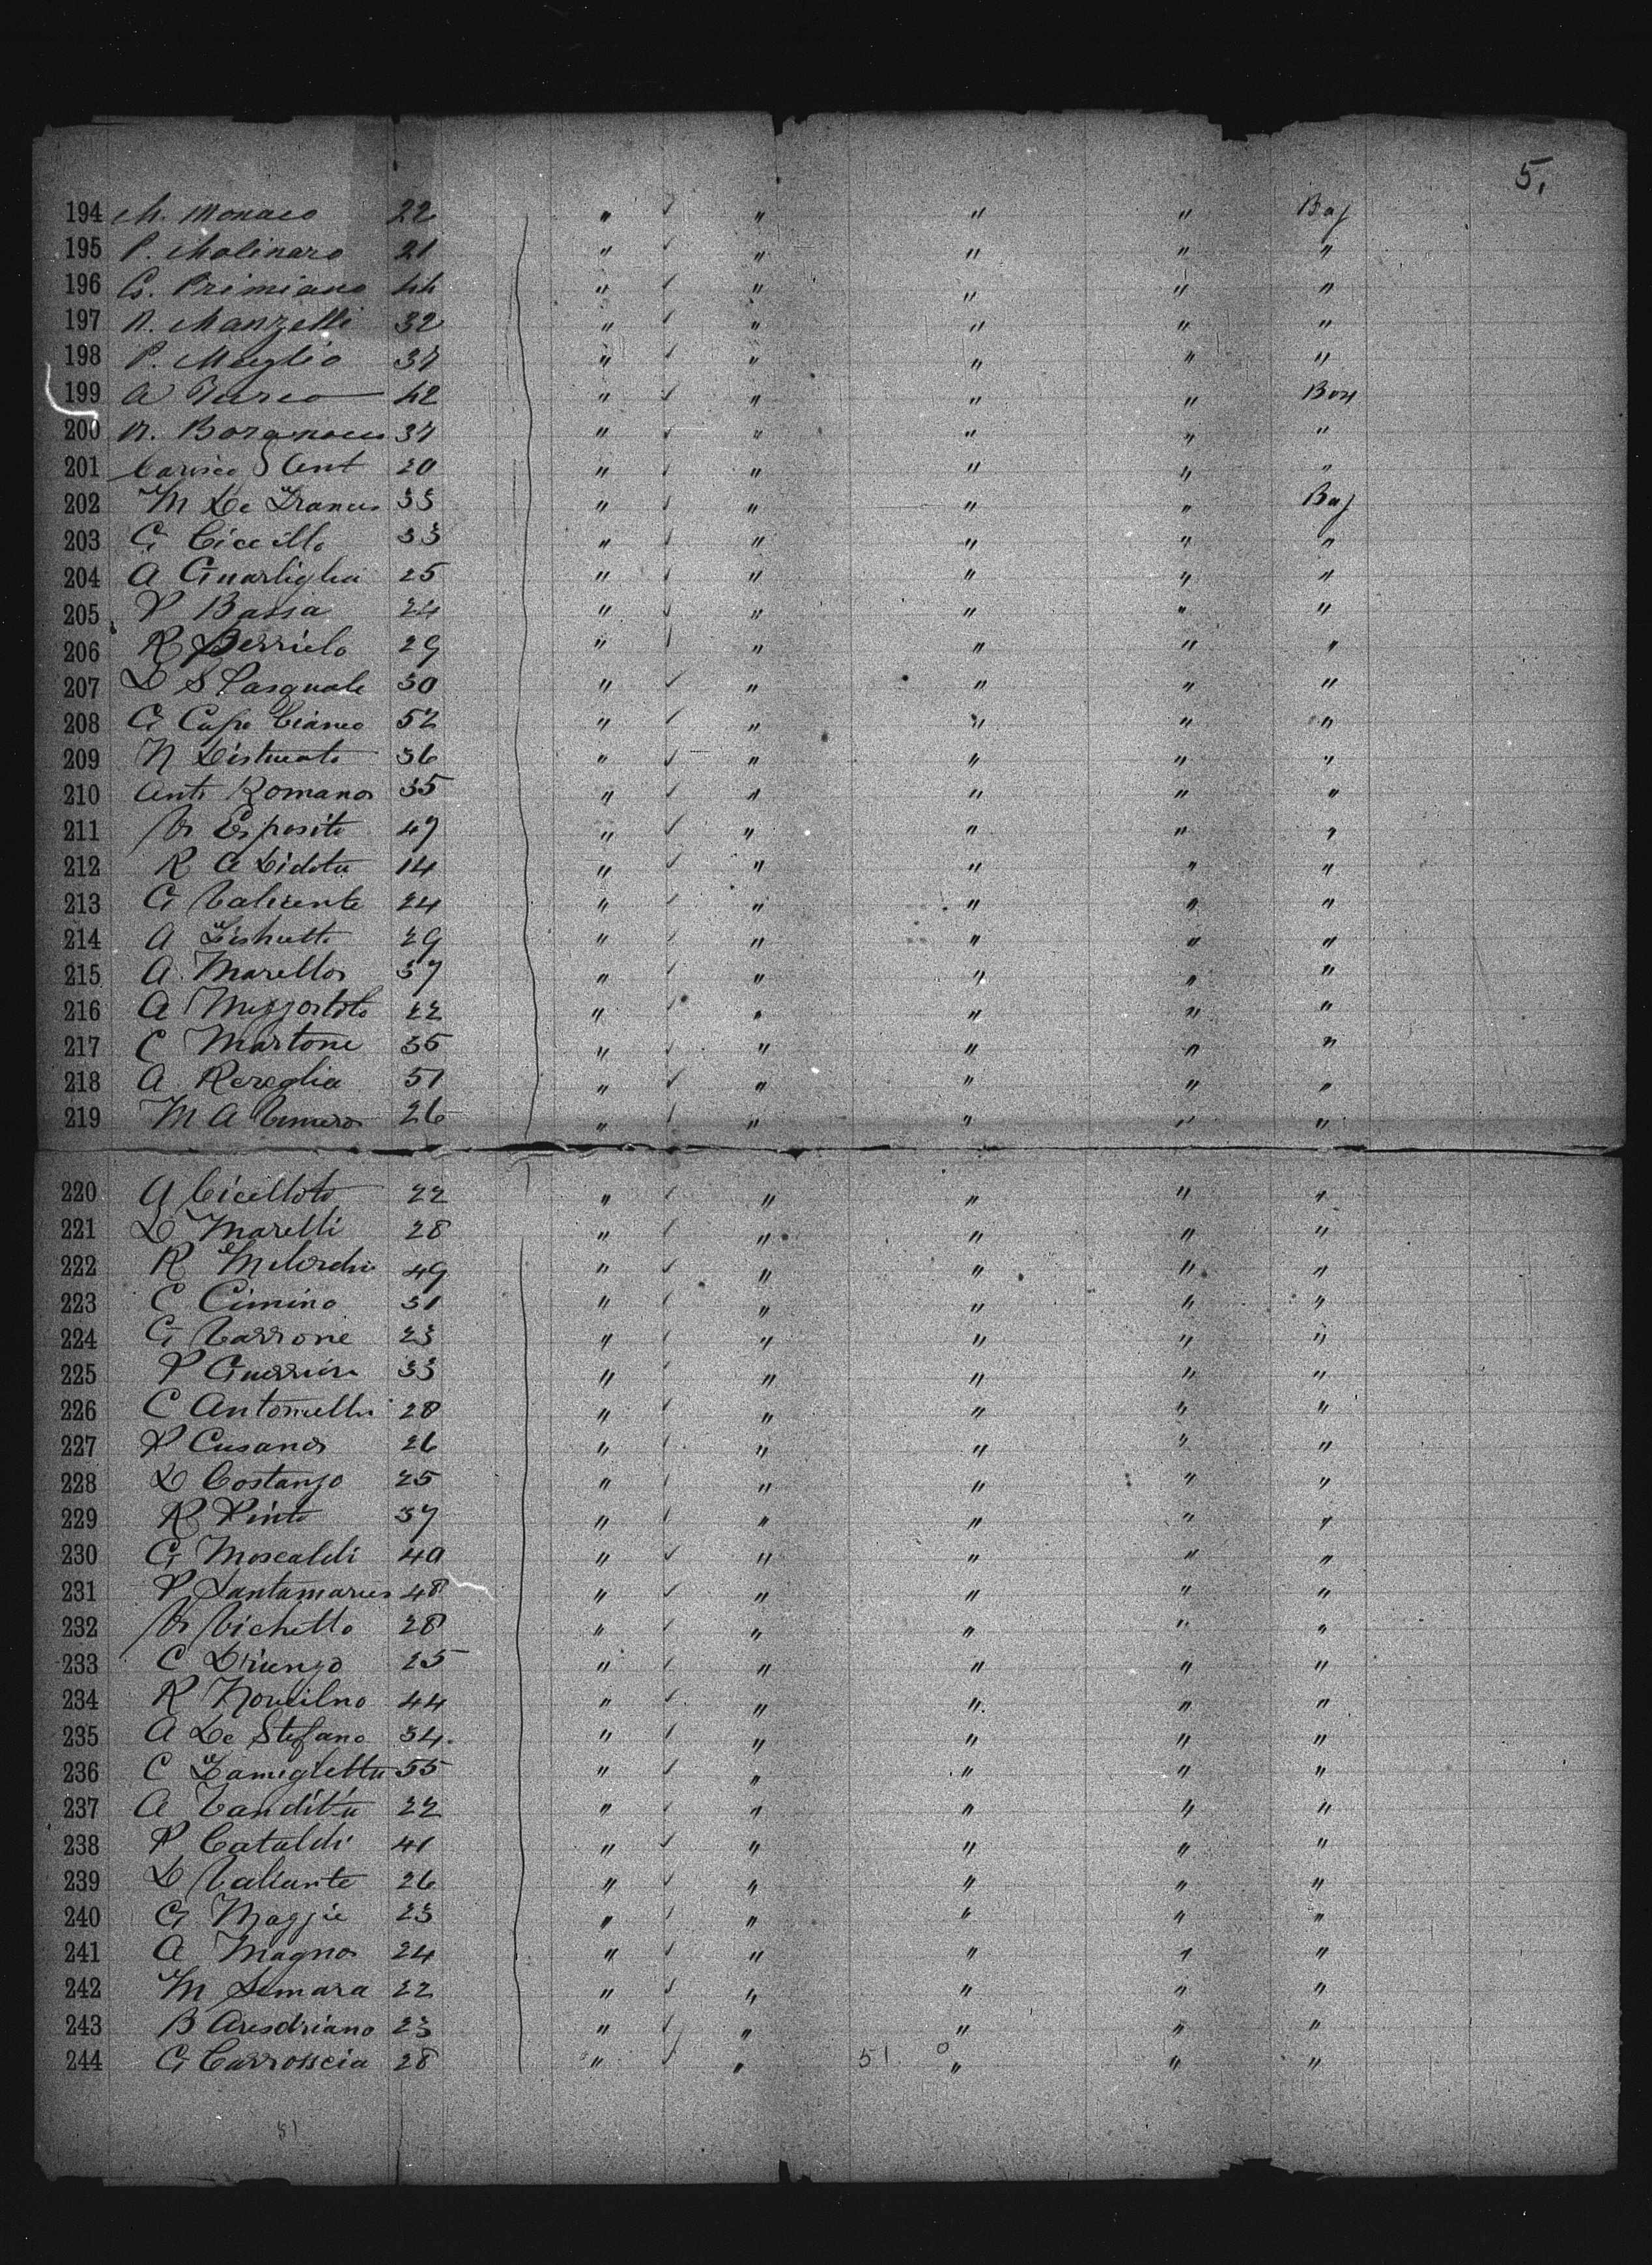 5.
194 M. Monaco 22 " ✓ " " " Bag
195 P. Molinaro 21 " ✓ " " " "
196 G. Primiano 44 " ✓ " " " "
197 N. Manzelli 32 " ✓ " " " "
198 P. Meglio 37 " ✓ " " " "
199 A Turco 42 " ✓ " " " Box
200 N. 37 " ✓ " " " "
201 Ant 20 " ✓ " " " "
202 M De Francis 33 " ✓ " " " Bag
203 G Ciccillo 33 " ✓ " " " "
204 A Guarliglia 25 " ✓ " " " "
205 P Bassa 24 " ✓ " " " "
206 R Perrielo 29 " ✓ " " " "
207 D S Pasquale 30 " ✓ " " " "
208 G Capo Cianco 52 " ✓ " " " "
209 N 36 " ✓ " " " "
210 Anto Romano 35 " ✓ " " " "
211 V Esposito 49 " ✓ " " " "
212 R A 14 " ✓ " " " "
213 G Valvente 24 " ✓ " " " "
214 A 29 " ✓ " " " "
215 A Marello 37 " ✓ " " " "
216 A 22 " ✓ " " " "
217 C Martone 35 " ✓ " " " "
218 A Rereglia 51 " ✓ " " " "
219 M A 26 " ✓ " " " "
220 A Cicelloto 22 " ✓ " " " "
221 D Marelli 28 " ✓ " " " "
222 R 49 " ✓ " " " "
223 C Cimino 31 " ✓ " " " "
224 G Varrone 23 " ✓ " " " "
225 P Guerriero 33 " ✓ " " " "
226 C Antonielli 28 " ✓ " " " "
227 P Cusano 26 " ✓ " " " "
228 D Costanzo 25 " ✓ " " " "
229 R Pinto 37 " ✓ " " " "
230 G Moscaldi 40 " ✓ " " " "
231 P Santamaria 48 " ✓ " " " "
232 V Vichetto 28 " ✓ " " " "
233 C Drienzo 25 " ✓ " " " "
234 R 44 " ✓ " " " "
235 A De Stefano 34. " ✓ " " " "
236 C Famigletta 55 " ✓ " " " "
237 A Vanditta 22 " ✓ " " " "
238 P Cataldi 41 " ✓ " " " "
239 D Valiante 26 " ✓ " " " "
240 G Mazzie 23 " ✓ " " " "
241 A Magno 24 " ✓ " " " "
242 M Semara 22 " ✓ " " " "
243 B Aresdriano 23 " ✓ " " " "
244 G Carroscia 28 " ✓ " 51 0 " " "
51